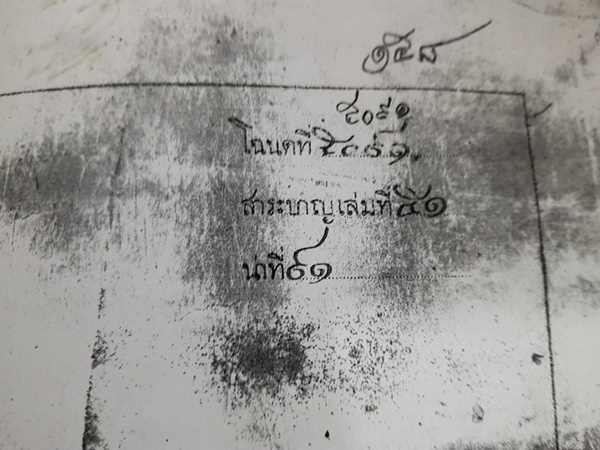 ๑๕๘
๕๐๙๑
โฉนดที่ ๕๐๙๑
สาระบาญเล่มที่ ๕๑
น่าที่ ๙๑